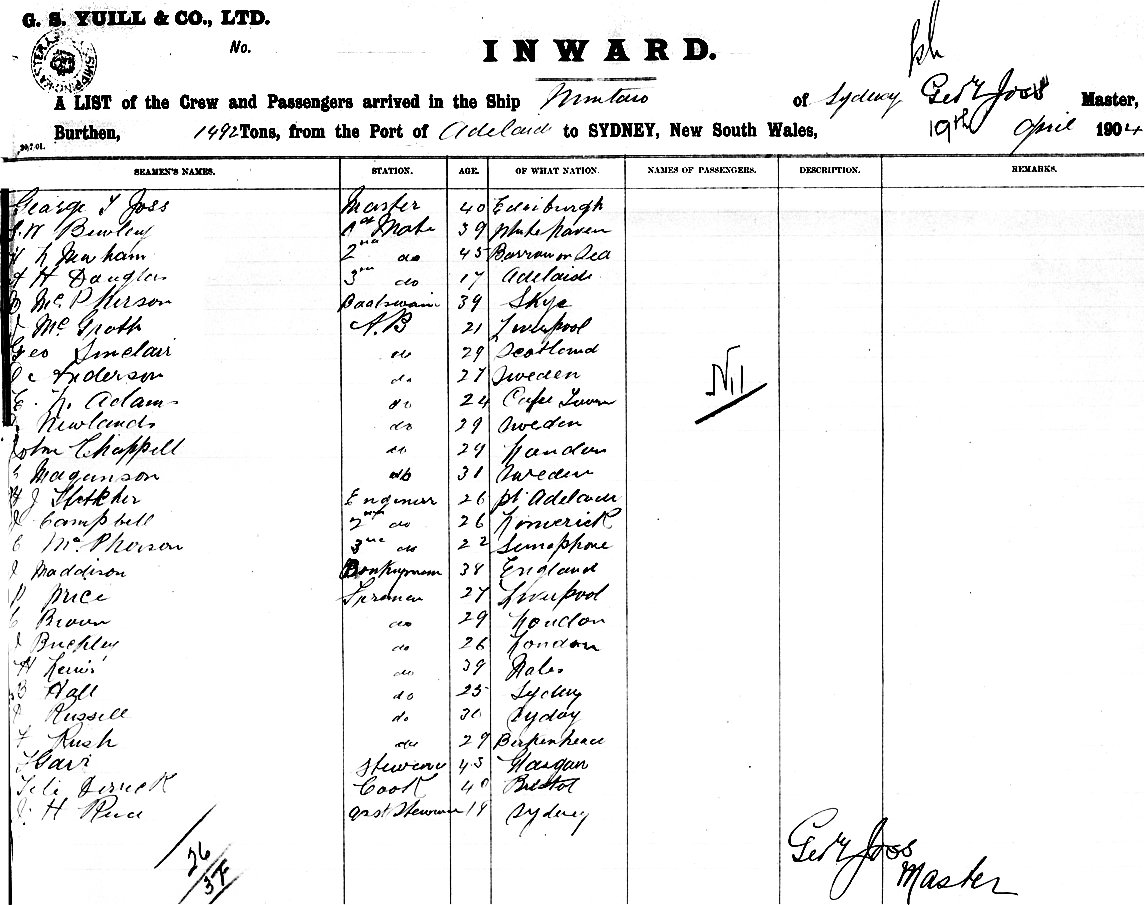 G. S. YUILL & CO., LTD.
No.
INWARD.
A LIST of the Crew and Passengers arrived in the Ship of Sydney Geo Y Joss Master,
Burthen, 1492 Tons, from the Port of Adelaide to SYDNEY, New South Wales, 19th April 1904
SEAMEN'S NAMES. STATION. AGE. OF WHAT NATION. NAMES OF PASSENGERS. DESCRIPTION. REMARKS.
George Y Joss Master 40 Edinburgh
Bewley 1st Mate 39 Whitehaven
2nd do 45 Barrow on Sea
A H Douglas 3rd do 17 Adelaide
McPherson Boatswain 39 Skye
McGrath A.B 21 Liverpool
Geo Sinclair do 29 Scotland
Anderson do 27 Sweden
E. Adams do 24 Cape Town
Newlands do 29 Sweden
John Chappell do 29 London
Magunson do 31 Sweden
J Fletcher Engineer 26 pt Adelaide
Campbell 2nd do 26 Limerick
McPherson 3rd do 22
Maddison Donkeyman 38 England
Price Fireman 27 Liverpool
Brown do 29 London
Buckley do 26 London
H Lewis do 39 Wales
Hall do 25 Sydney
Russell do 30 Sydney
Rush do 29 Birkenhead
Steward 43 Glasgow
Cook 40 Bristol
H asst Steward 19 Sydney
Nil
26
Geo Y Joss
Master